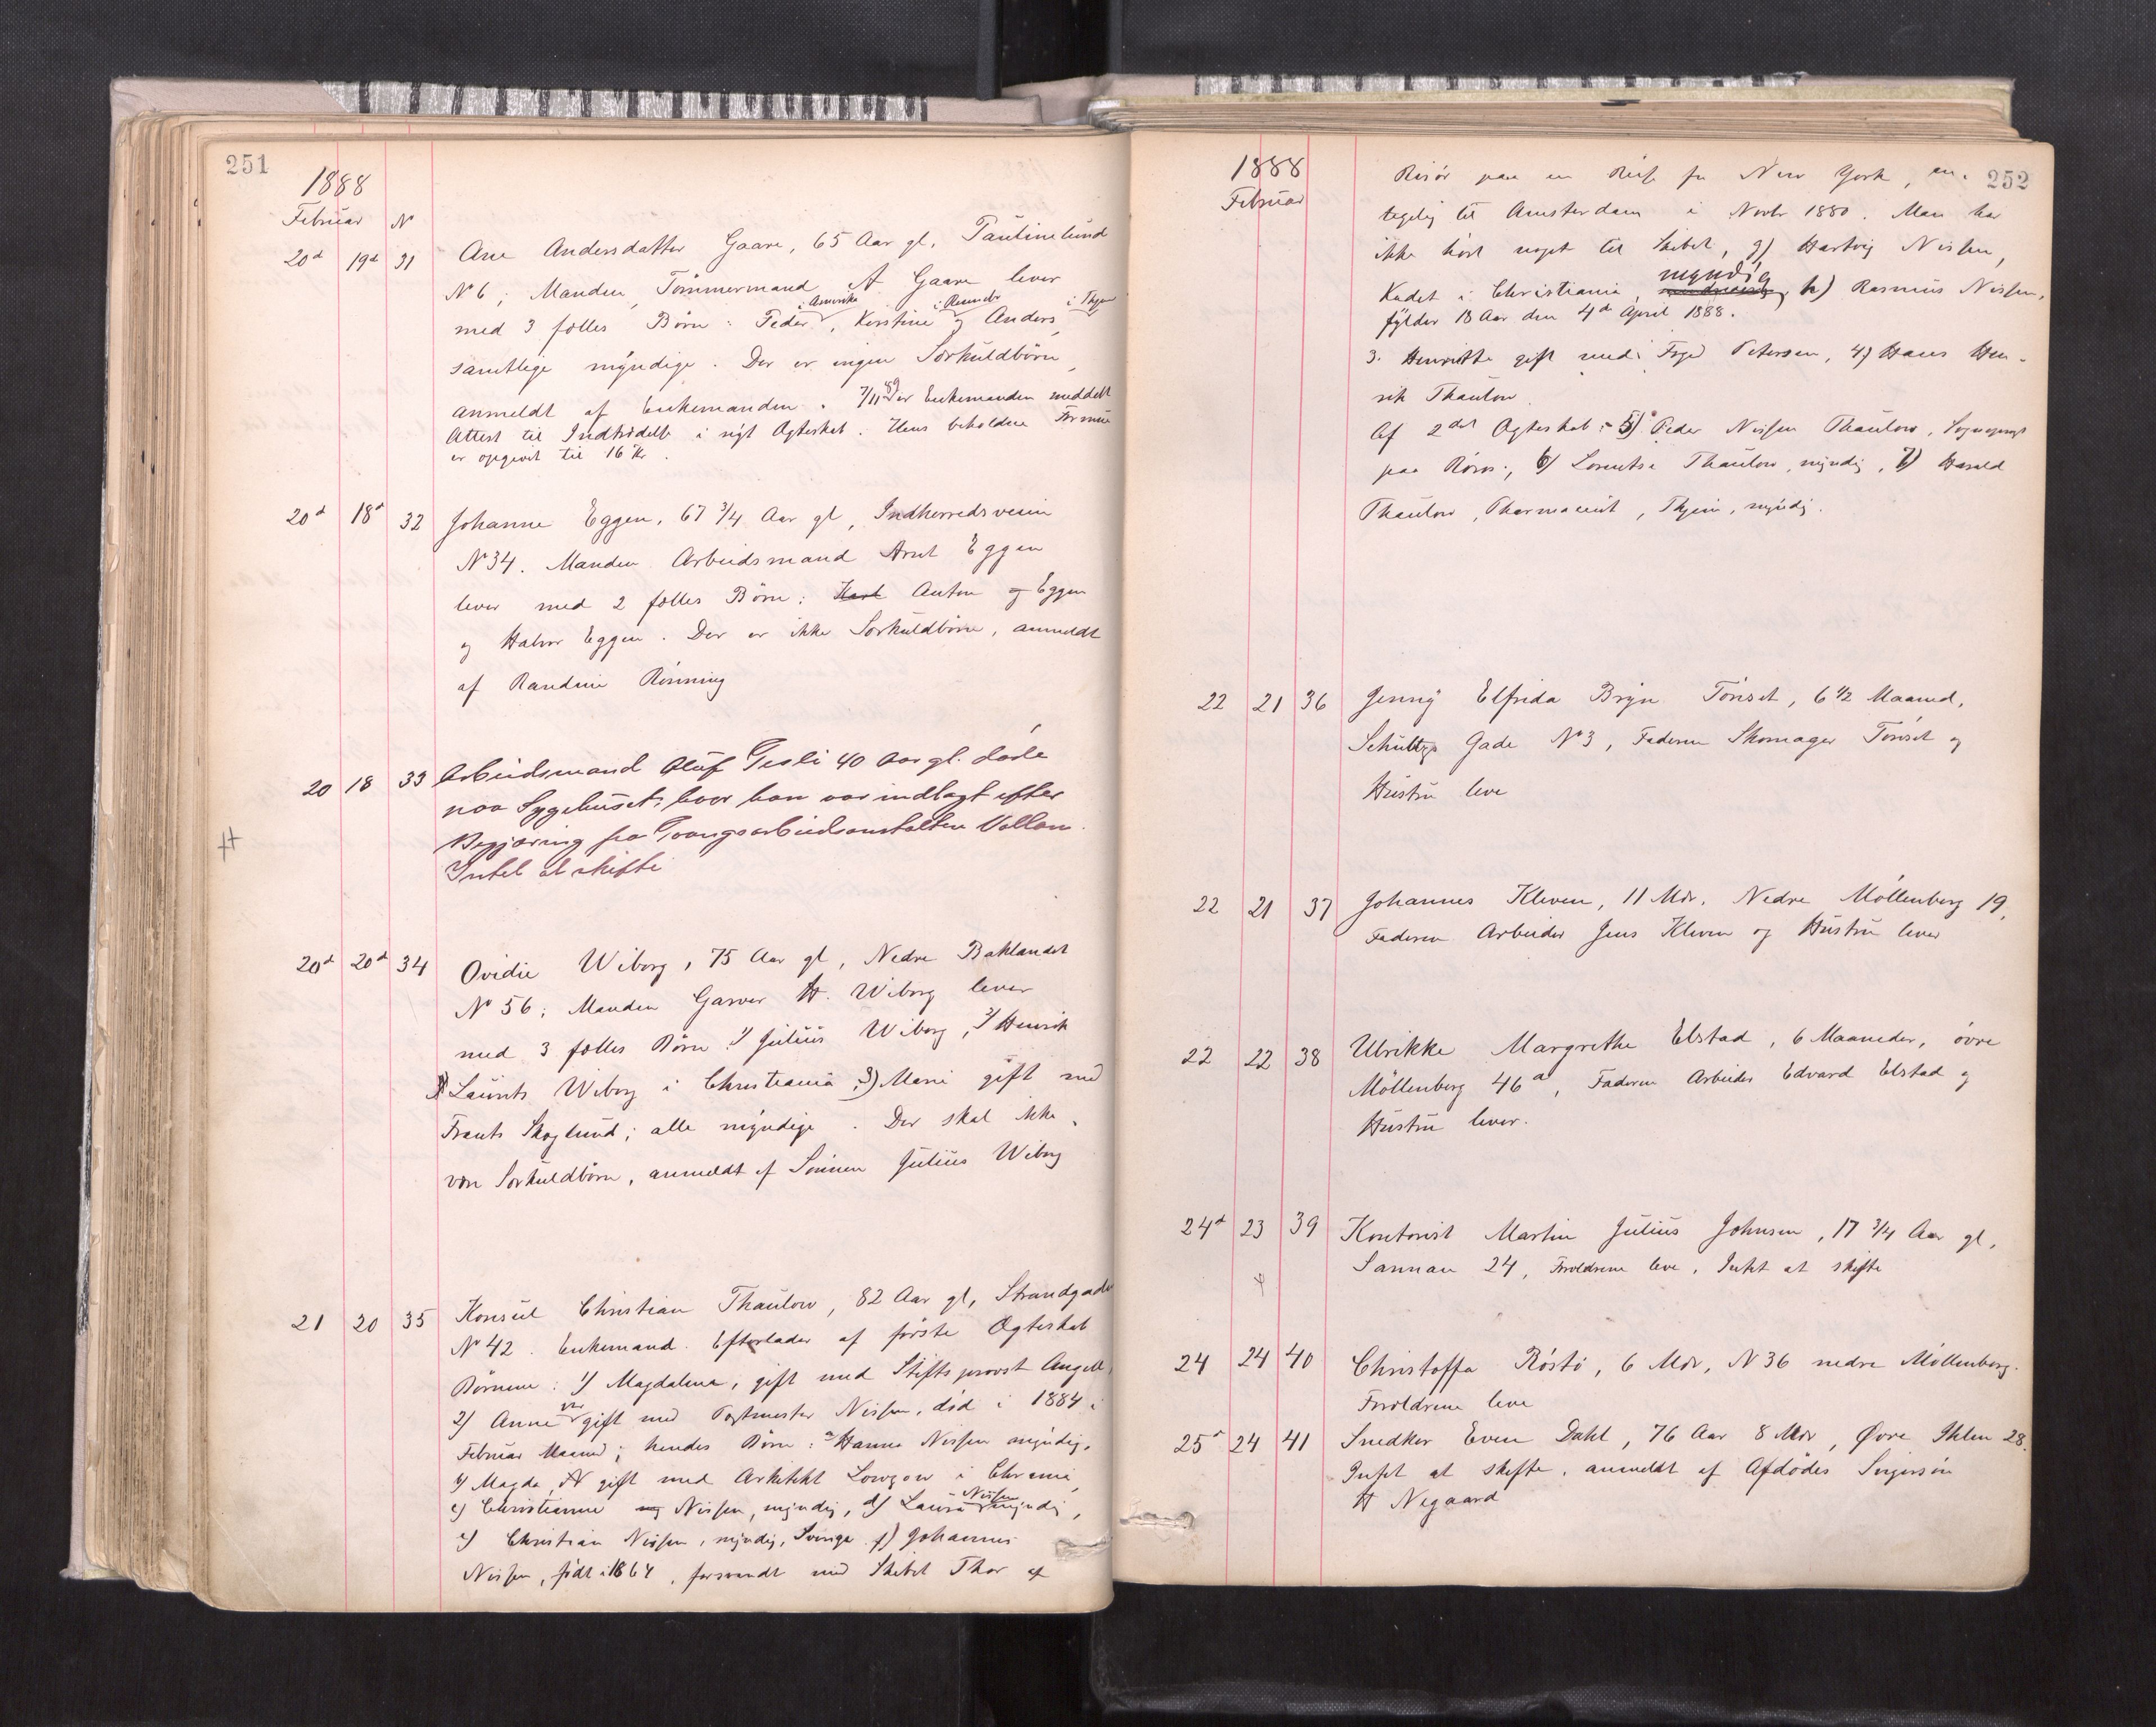 251
1888
Februar N
20d 19d 31 Ane Andersdatter Gaare, 65 Aar gl, Paulinelund
N 6; Manden Tömmermand A Gaare lever
i Amerika i Thjem
med 3 fælles Börn: Peder, Kerstine og Anders
samtlige myndige. Der er ingen Særkuldbörn
anmeldt af Enkemanden. 7/11 89 er Enkemanden meddelt
Attest til Indtrædelse i nyt Ægteskab. Hans beholdne Formue
er opgivet til 16 Kr.
20d 18d 32 Johanne Eggen, 67 3/4 Aar gl, Indherredsveien
N 34. Manden Arbeidsmand Arnt Eggen
lever med 2 fælles Börn: Karl Anton og Eggen
og Halvor Eggen. Der er ikke Særkuldbörn, anmeldt
af Randine Rönning
20 18 33 Arbeidsmand Oluf Tesli 40 Aar gl. döde
paa Sygehuset, hvor han var indlagt efter
Begjæring fra Tvangsarbeidsanstalten Vollan.
Intet at skifte
20d 20d 34 Ovidie Wiborg, 75 Aar gl, Nedre Baklandet
N 56; Manden Garver H. Wiborg lever
med 3 fælles Börn 1) Julius Wiborg, 2) Henrik
Laurits Wiborg i Christiania, 3) Marie gift med
Frants Skoglund; alle myndige. Der skal ikke
være Særkuldbörn, anmeldt af Sönnen Julius Wiborg
21 20 35 Konsul Christian Thaulow, 82 Aar gl, Strandgaden
N 42. Enkemand. Efterlader af förste Ægteskab
Börnene: 1) Magdalena, gift med Stiftsprovst Angell,
2) Anne var gift med Postmester Nissen, död i 1884 i
Februar Maaned; hendes Börn: a Hanna Nissen myndig,
b) Magda N gift med Arkitekt Lowzow i Chrania,
c) Christianne og Nissen, myndig, d) Laura Nissen myndig,
e) Christian Nissen, myndig, f) Johannes
Nissen, födt i 1864, forsvandt med Skibet Thor af
252
1888
Februar
Risör paa en Reise fra New York, an-
tagelig til Amsterdam i Novbr 1880. Man har
ikke hört noget til Skibet, g) Hartvig Nissen,
Kadet i Christiania, myndig h) Rasmus Nissen,
fylder 18 Aar den 4de April 1888.
3. Henriette gift med Foged Petersen, 4) Hans Hen-
rik Thaulow
Af 2det Ægteskab: 5) Peder Nissen Thaulow, Sogneprest
paa Röros, 6) Lorentse Thaulow, myndig, 7) Harald
Thaulow, Pharmaceut, Thjem, myndig.
22 21 36 Jenny Elfrida Bryn Tönset, 6 1/2 Maaned,
Schultzs Gade N 3, Faderen Skomager Tönset og
Hustru leve
22 21 37 Johannes Kleven, 11 Mdr. Nedre Möllenberg 19,
Faderen Arbeider Jens Kleven og Hustru lever
22 22 38 Ulrikke Margrethe Elstad, 6 Maaneder, övre
Möllenberg 46a, Faderen Arbeider Edvard Elstad og
Hustru lever.
24d 23 39 Kontorist Martin Julius Johnsen, 17 3/4 Aar gl,
Sannan 24, Forældrene leve, Intet at skifte
24 24 40 Christoffa Röstö, 6 Mdr, N 36 nedre Möllenberg.
Forældrene leve
25d 24 41 Snedker Even Dahl, 76 Aar 8 Mdr, Øvre Ihlen 28.
Intet at skifte, anmeldt af Afdödes Svigersön
H Negaard